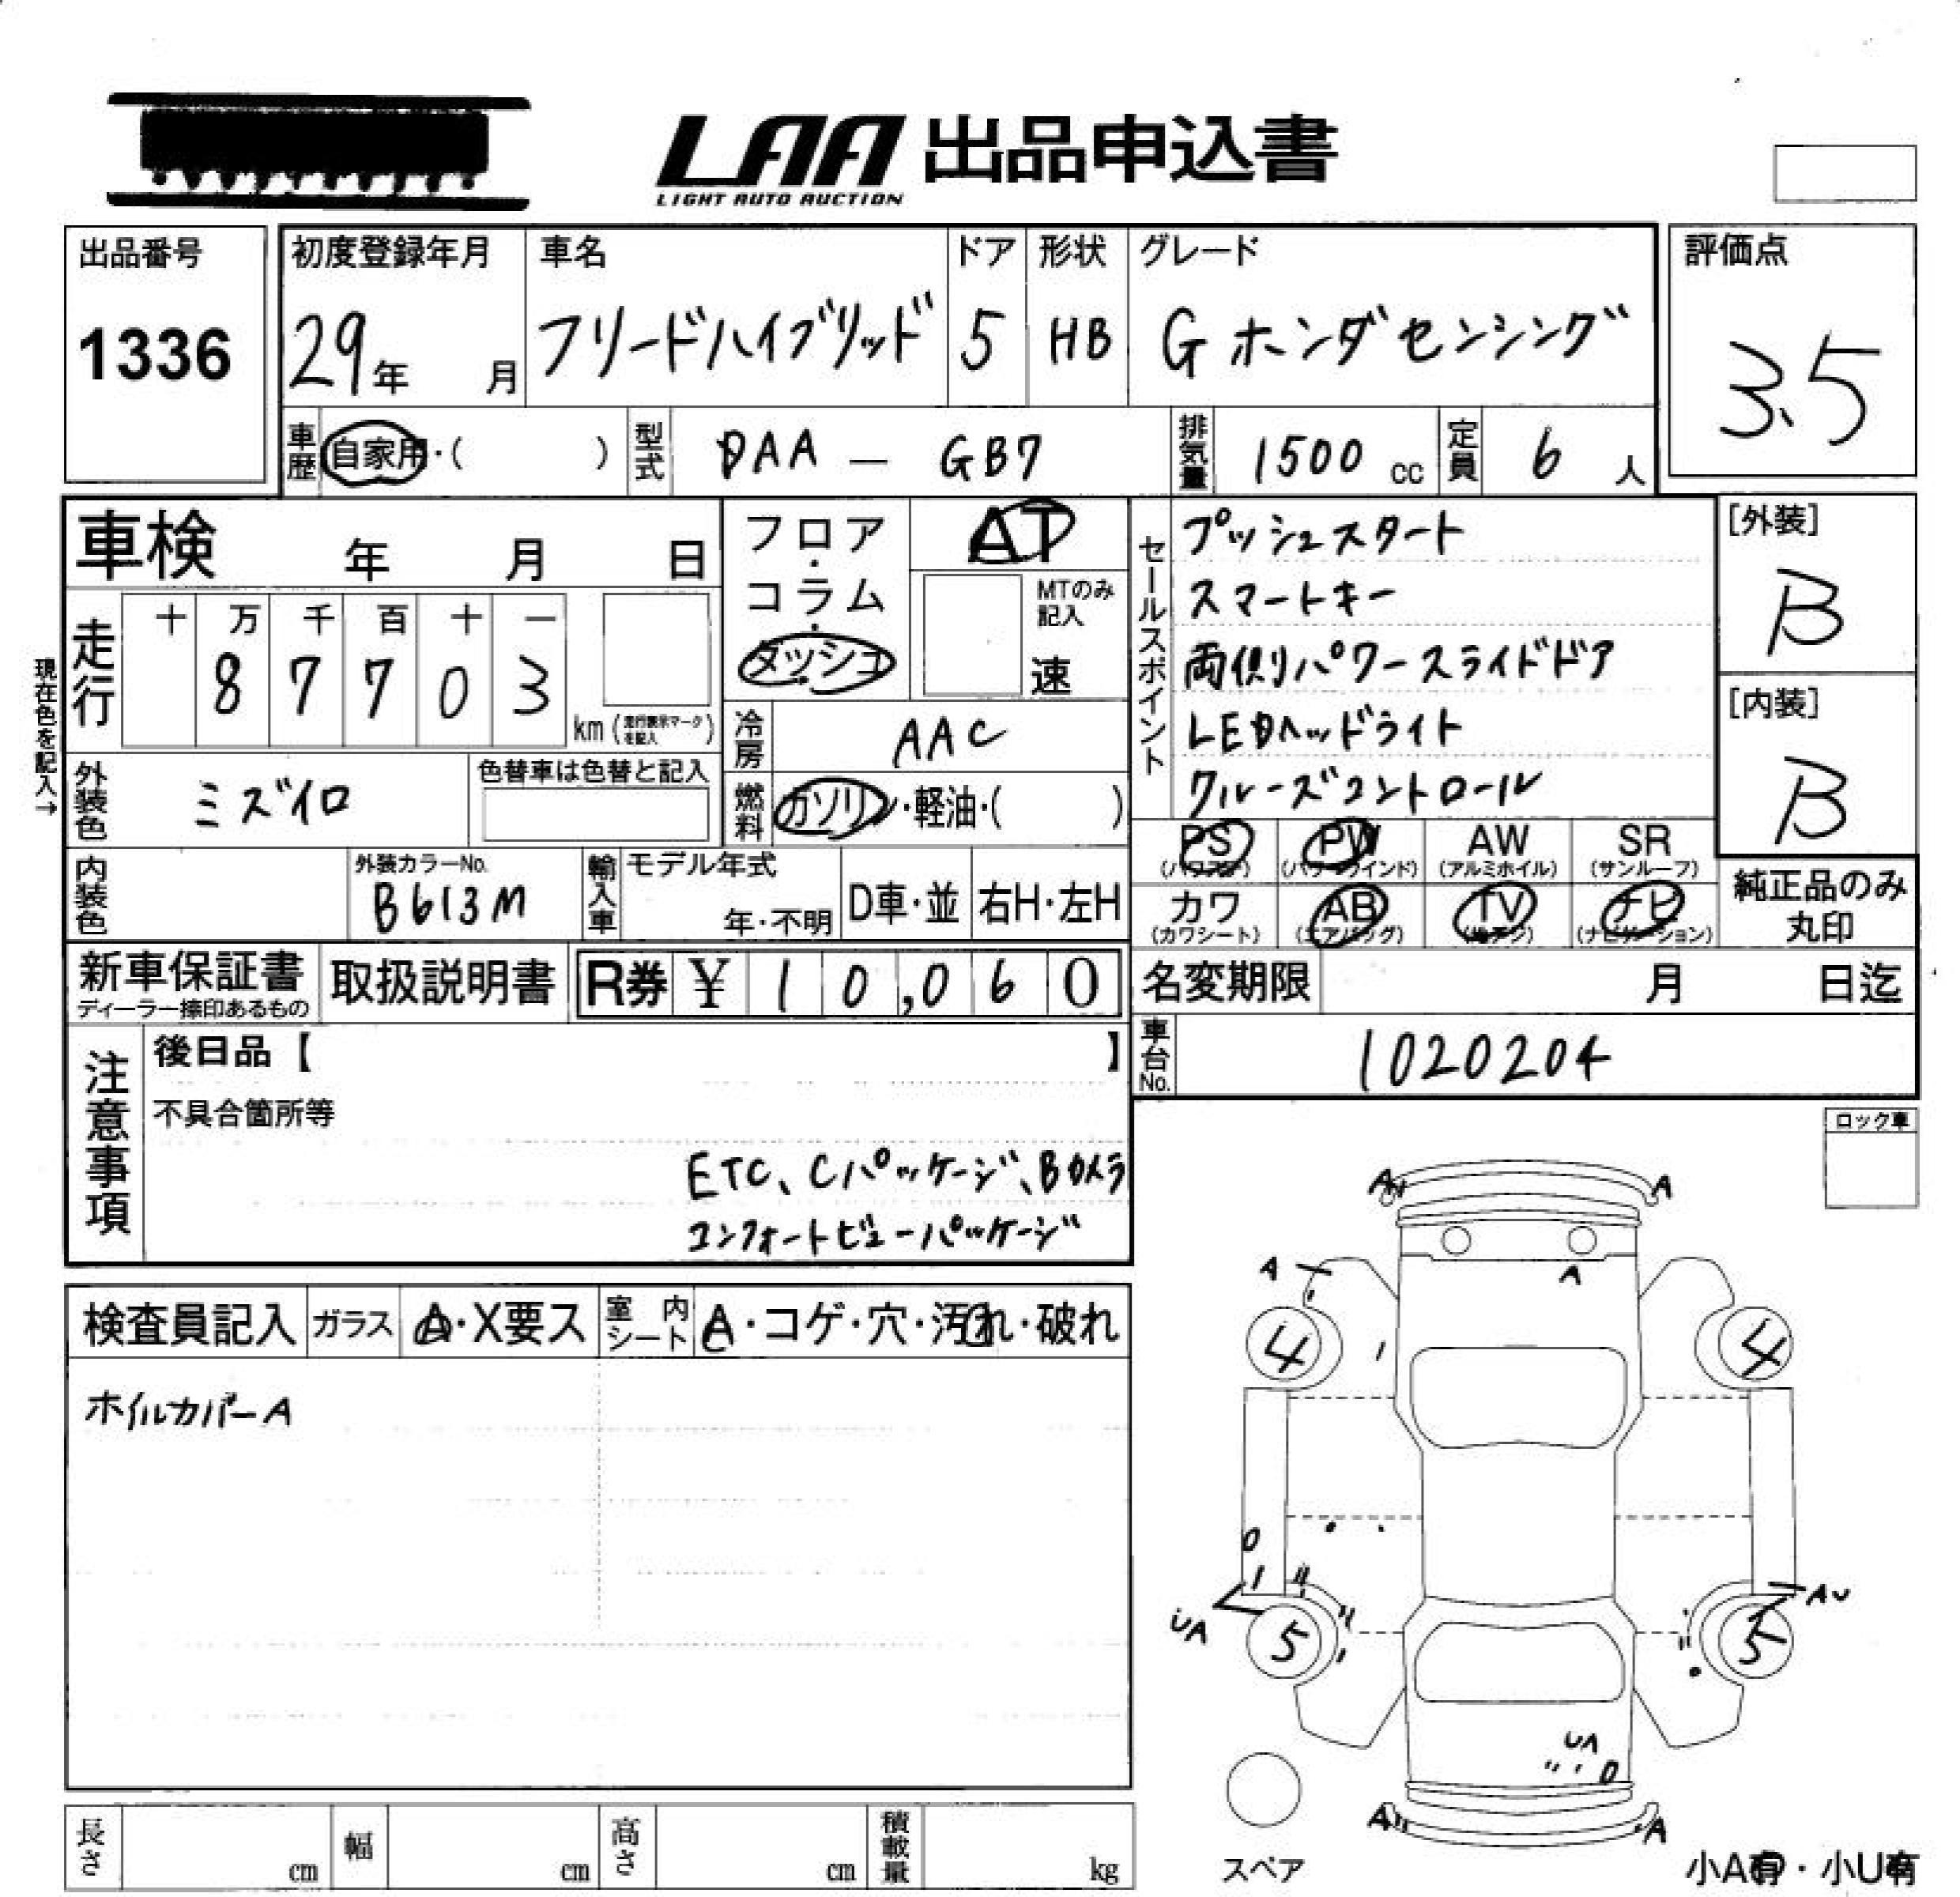 LAA 出品申込書
LIGHT AUTO AUCTION
出品番号
1336
初度登録年月
29年 月
車名
フリードハイブリッド
ドア
5
形状
HB
グレード
G ホンダセンシング
評価点
3.5
車歴 自家用・( )
型式 DAA — GB7
排気量 1500 cc
定員 6 人
車検 年 月 日
走行
十 万 千 百 十 一
8 7 7 0 3
km (走行表示マークを記入)
現在色を記入→
フロア・コラム・ダッシュ
AT
MTのみ記入
速
冷房 AAC
燃料 ガソリン・軽油・( )
外装色 ミズイロ
色替車は色替と記入
内装色
外装カラーNo.
B613M
輸入車
モデル年式
年・不明
D車・並
右H・左H
セールスポイント
プッシュスタート
スマートキー
両側パワースライドドア
LEDヘッドライト
クルーズコントロール
[外装]
B
[内装]
B
PS PW AW SR
(パワステ) (パワーウインド) (アルミホイル) (サンルーフ)
カワ AB TV ナビ
(カワシート) (エアバッグ) (地デジ) (ナビゲーション)
純正品のみ
丸印
新車保証書
ディーラー捺印あるもの
取扱説明書
R券 ¥ 10,060
名変期限 月 日迄
車台No. 1020204
注意事項
後日品【 】
不具合箇所等
ETC、Cパッケージ、Bカメラ
コンフォートビューパッケージ
ロック車
検査員記入
ガラス A・X要ス
室内シート A・コゲ・穴・汚れ・破れ
ホイルカバーA
A A
A A
4 4
UA AU
5 5
UA
A A
スペア
小A有・小U有
長さ cm
幅 cm
高さ cm
積載量 kg